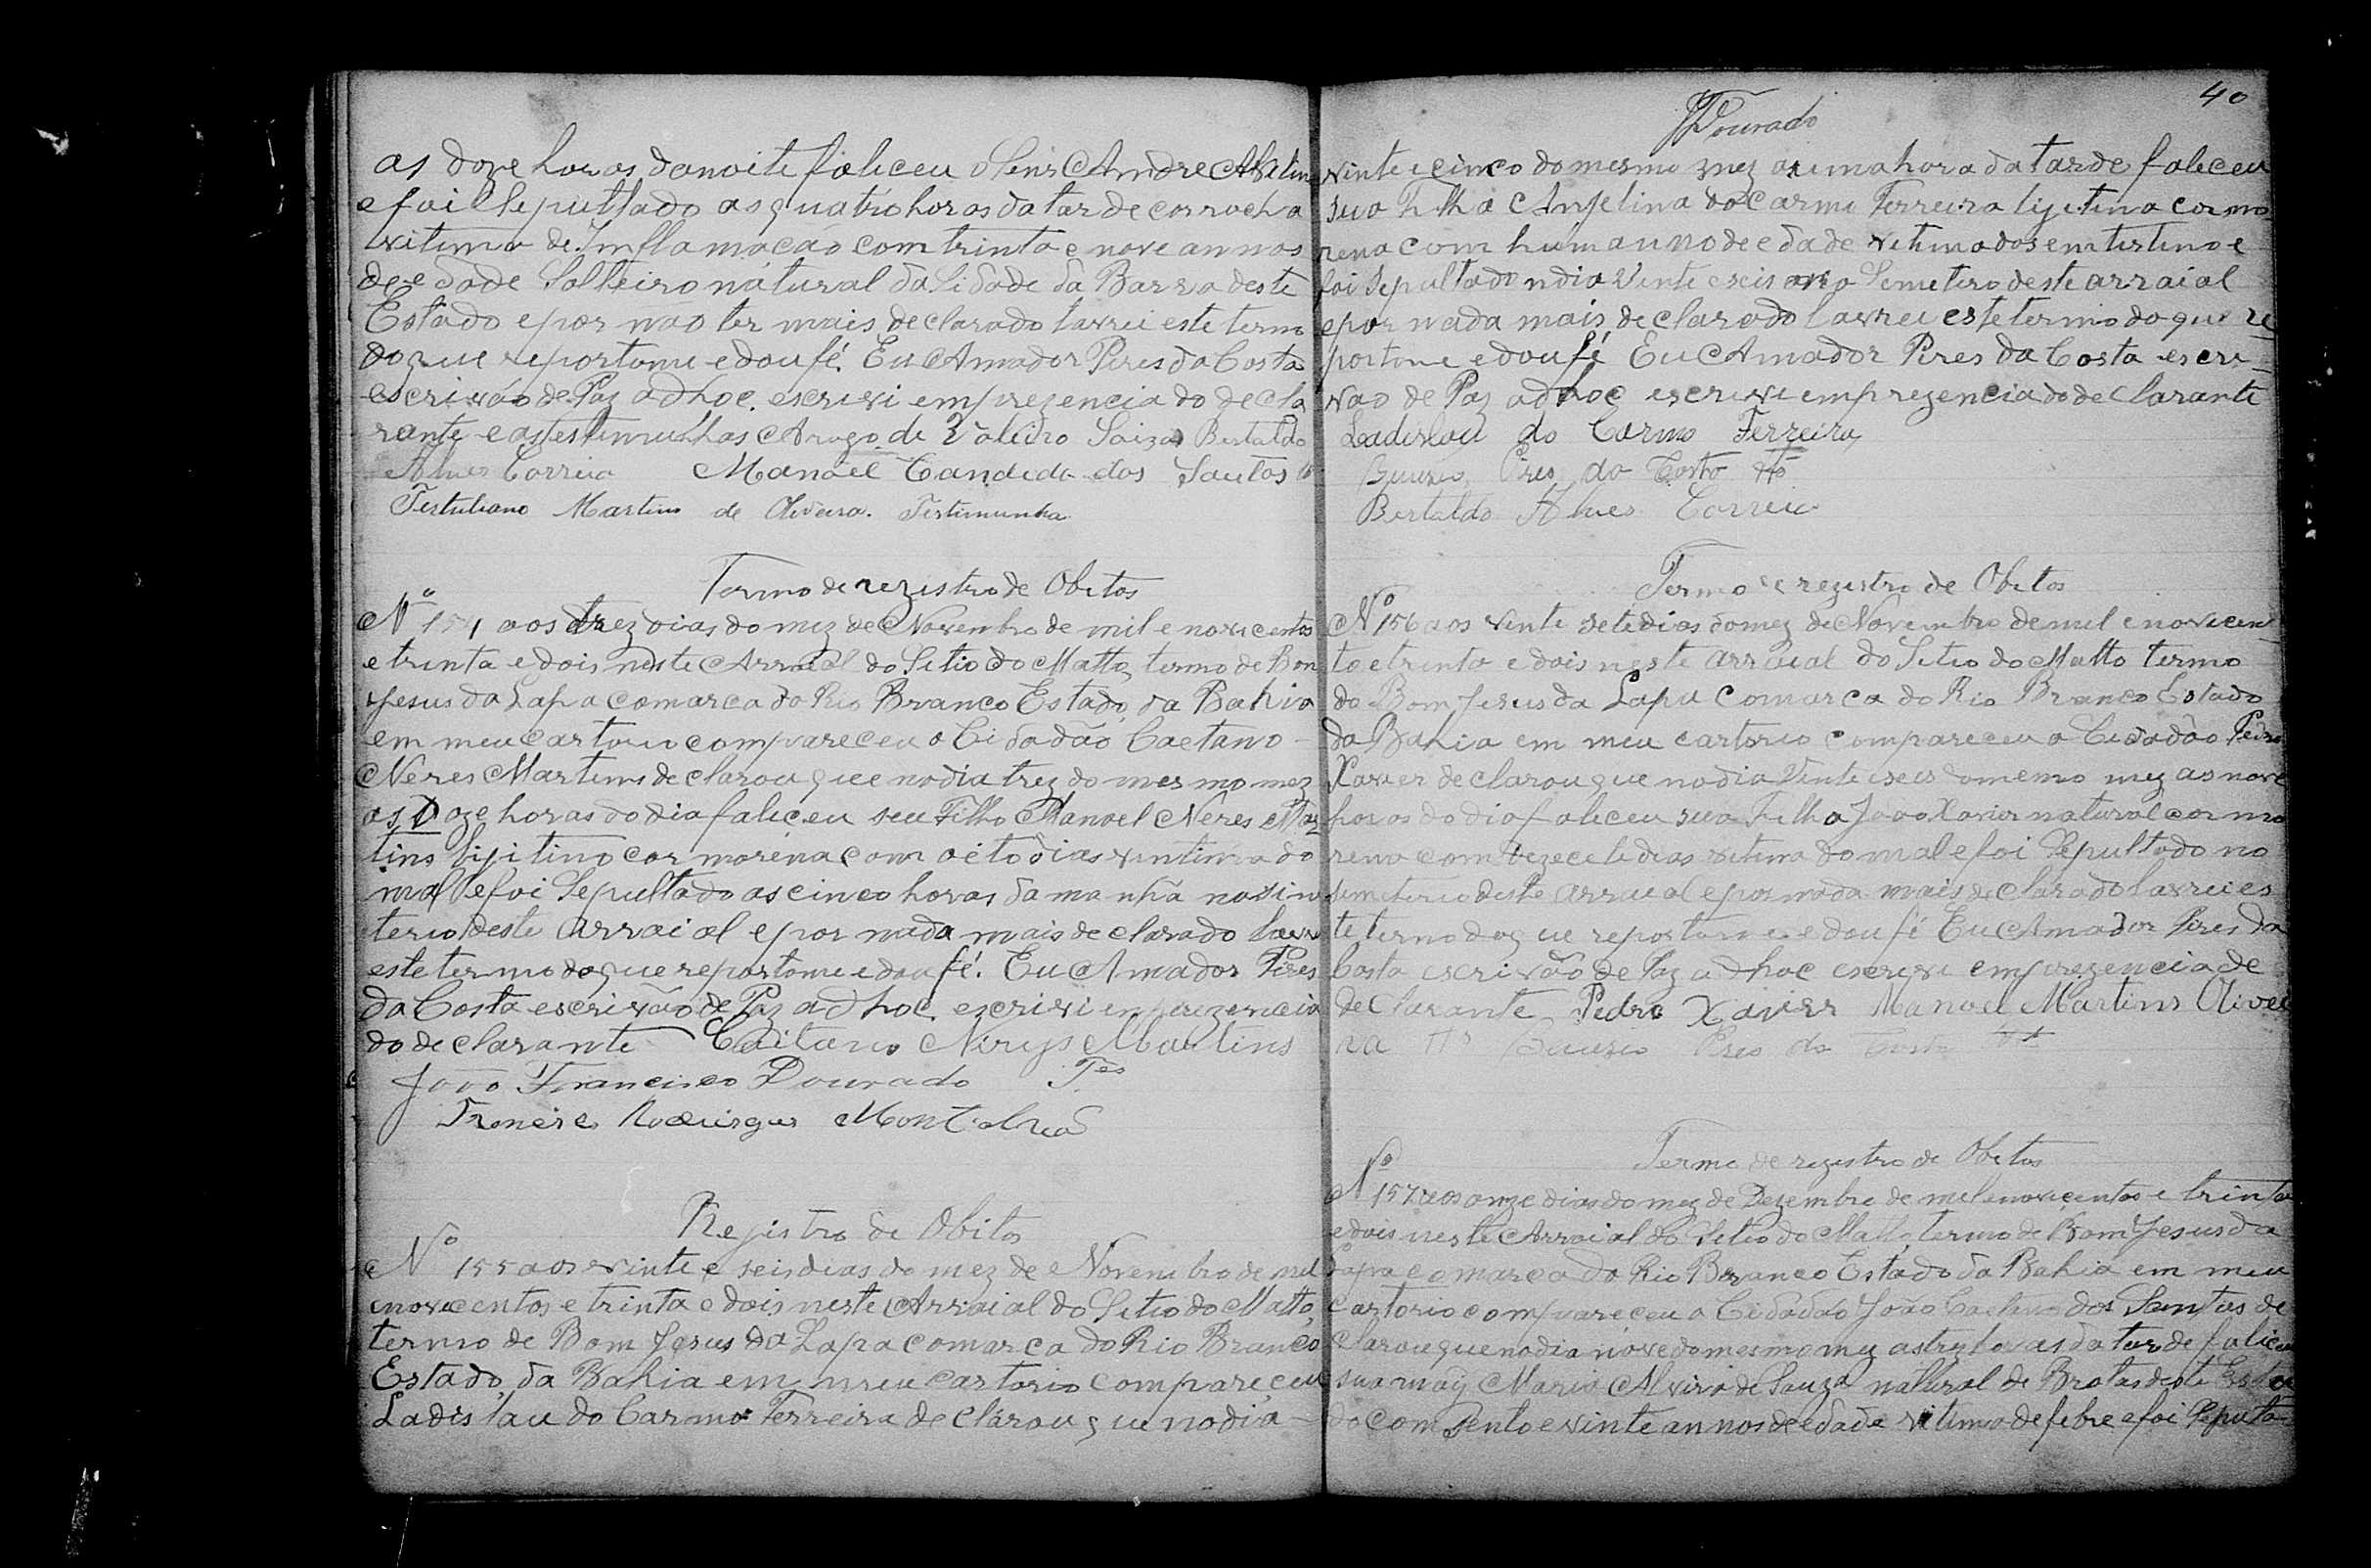 as doze horas da noite faliceu o Senr Andre Avelin
e foi Sepultado as quatro horas da tarde cor rocha
vitima de Inflamacão com trinta e nove annos
de edade Solteiro natural da Sidade da Barra deste
Estado e por nao ter mais declarado lavrei este termo
do que reportome e dou fé. Eu Amador Pires da Costa
escrivão de Paz adhoc. escrivi em prezencia do decla
rante e as testimunhas Arogo de Souza Bertaldo
Alves Correia Manoel Candido dos Santos
Tertuliano Martins de Oliveira. Testimunha
Termo de rezistro de Obitos
Nº 154 aos trez dias do mez de Novembro de mil e novicentos
e trinta e dois neste Arraial do Sitio do Matto, termo de Bon
Jesus da Lapa comarca do Rio Branco Estado da Bahia
em meu cartorio compareceu o Cidadão Caetano
Neres Martins declarou que no dia trez do mesmo mez
as Doze horas do dia faliceu seu Filho Manoel Neres Mar
tins lijitino cor morena com oito dias vintima do
mal e foi Sepultado as cinco horas da manhã no sim
terio deste arraial e por nada mais declarado lavre
este termo do que reportome e dou fé. Eu Amador Pires
da Costa escrivão de Paz adhoc. escrivi em prezencia
do declarante Caitano Nerys Martins
João Francisco Dourado Tes
Rodrigues Montalvão
Registro de Obitos
Nº 155 aos vinte e seis dias do mez de Novembro de mil
enovecentos e trinta e dois neste Arraial do Sitio do Matto,
termo de Bom Jesus da Lapa comarca do Rio Branco
Estado da Bahia em meu cartorio compareceu
Ladislau do Carmo Ferreira declarou que no dia
40
Dourado
vinte e cinco do mesmo mez as uma hora da tarde faleceu
sua filha Anjelina do Carmo Ferreira lijitina cor mo
rena com hum anno de edade vitima dos emtistino e
foi Sepultado n dia vinte e seis no Semetero deste arraial
e por nada mais declarado lavrei este termo do que re
portome e dou fé Eu Amador Pires da Costa escri
vao de Paz adhoc escrivi em prezencia do declarante
Ladislau do Carmo Ferreira
Pires da Costo
Bertaldo Alves Correia
Termo de registro de Obitos
Nº 156 aos vente sete dias do mez de Novembro de mil e novicen
to e trinta e dois neste arraial do Sitio do Matto termo
do Bom Jesus da Lapa comarca do Rio Branco Estado
da Bahia em meu cartorio compareceu o Cidadão Pedro
Xavier declarou que no dia vinte e seis do memo mez as nove
horas do dia faleceu sua Filha Joao Xavier natural cor mo
rena com dezecete dias vitima do mal e foi Sepultado no
simeterio deste arraial e por nada mais declarado lavrei es
te termo do que reportome e dou fé Eu Amador Pires da
Costa escrivão de Paz adhoc escrivi em prezencia de
declarante Pedro Xavier Manoel Martins Olivei
ra Pires da Costa
Termo de registro de Obitos
Nº 157 aos onze dias do mez de Dezembro de mil enovecentos e trinta
e dois neste Arraial do Sitio do Matto, termo de Bom Jesus da
Lapa comarca do Rio Branco Estado da Bahia em meu
cartorio compareceu o Cidadão João dos Santos de
clarou que no dia nove do mesmo mez as trez horas da tarde faliceu
sua may Maria Alvira de Souza natural de Brotas deste Esta
do com Sento e vinte annos de edade vitima de febre e foi Sepulta-